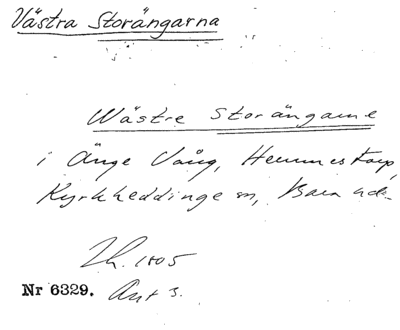 Västra Storängarna
Wästre Storängarne
i Änge Vång, Hemmestorp,
Kyrkheddinge sn, Bara hd.
Lh. 1805
Nr 6329. Akt 3.